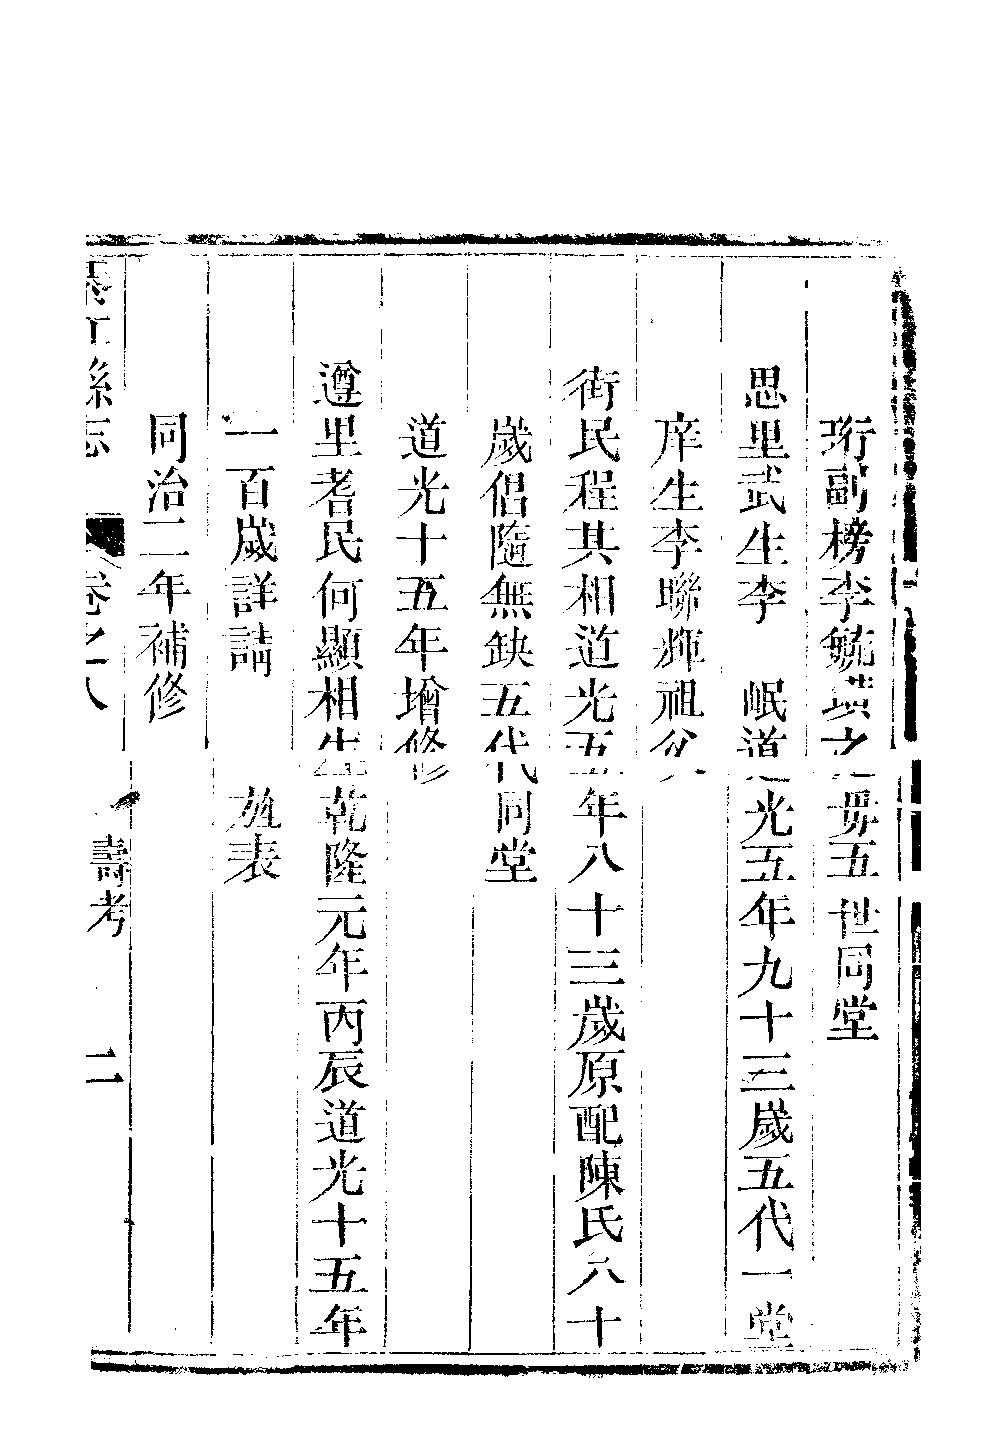 珩副榜李毓璜之母五世同堂
思里武生李 岷道光五年九十三歲五代一堂
庠生李聯輝祖父
街民程其相道光五年八十三歲原配陳氏八十
歲倡隨無缺五代同堂
道光十五年增修
遵里耆民何顯相生乾隆元年丙辰道光十五年
一百歲詳請 旌表
同治二年補修
綦江縣志 卷之八 壽考 二